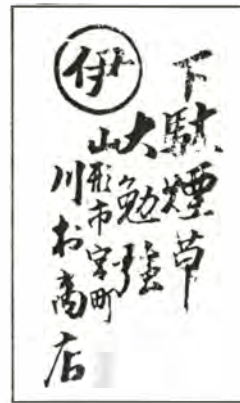 下駄煙草
大勉強
山形市宮町
川村商店
伊